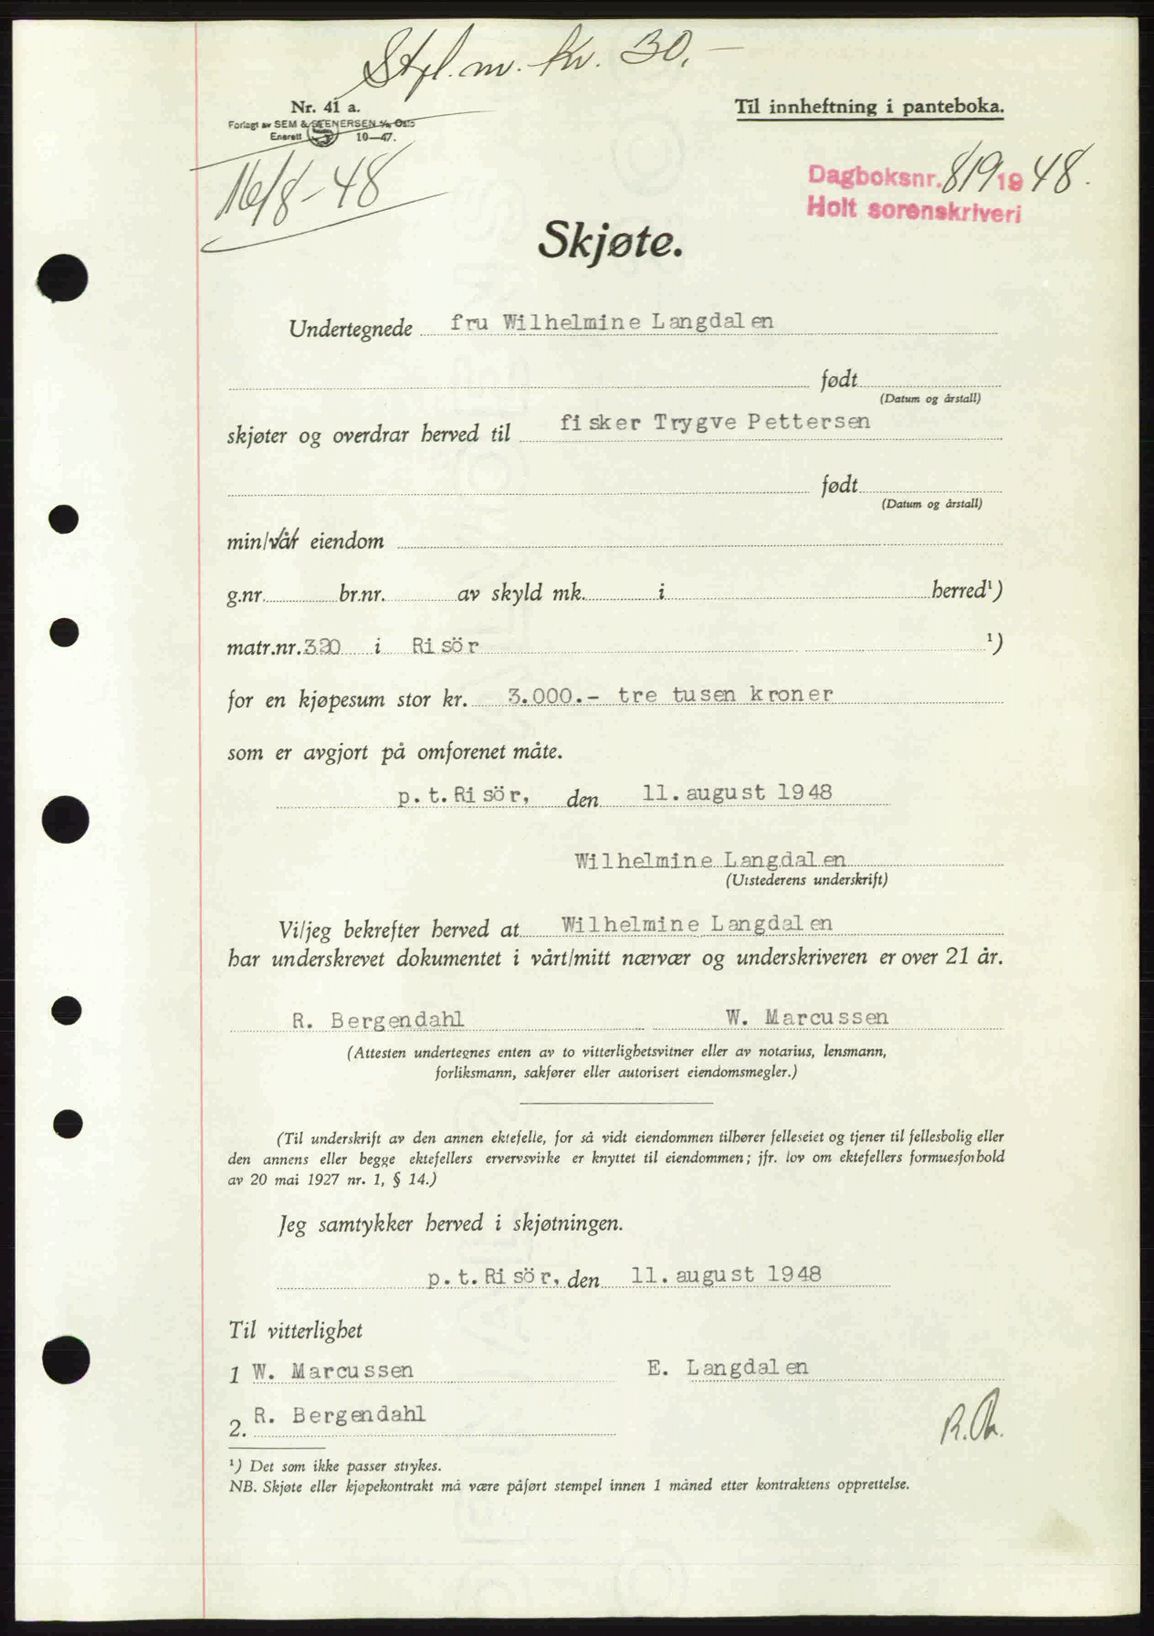 Stpl. m. kr. 30,-
Nr. 41 a.
Forlagt av SEM & STENERSEN A/S Oslo
Enerett 10-47.
Til innheftning i panteboka.
16/8-48
Dagboksnr. 819 1948.
Holt sorenskriveri
Skjøte.
Undertegnede fru Wilhelmine Langdalen
født
(Datum og årstall)
skjøter og overdrar herved til fisker Trygve Pettersen
født
(Datum og årstall)
min/vår eiendom
g.nr. br.nr. av skyld mk. i herred¹)
matr.nr. 320 i Risör ¹)
for en kjøpesum stor kr. 3.000.- tre tusen kroner
som er avgjort på omforenet måte.
p.t.Risör, den 11.august 1948
Wilhelmine Langdalen
(Utstederens underskrift)
Vi/jeg bekrefter herved at Wilhelmine Langdalen
har underskrevet dokumentet i vårt/mitt nærvær og underskriveren er over 21 år.
R. Bergendahl W. Marcussen
(Attesten undertegnes enten av to vitterlighetsvitner eller av notarius, lensmann,
forliksmann, sakfører eller autorisert eiendomsmegler.)
(Til underskrift av den annen ektefelle, for så vidt eiendommen tilhører felleseiet og tjener til fellesbolig eller
den annens eller begge ektefellers ervervsvirke er knyttet til eiendommen; jfr. lov om ektefellers formuesforhold
av 20 mai 1927 nr. 1, § 14.)
Jeg samtykker herved i skjøtningen.
p.t.Risör, den 11.august 1948
Til vitterlighet
1 W. Marcussen E. Langdalen
2. R. Bergendahl
¹) Det som ikke passer strykes.
NB. Skjøte eller kjøpekontrakt må være påført stempel innen 1 måned etter kontraktens opprettelse.